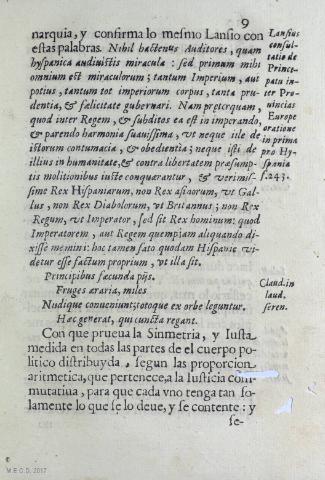 9
narquia, y confirma lo mesmo Lansio con
estas palabras. Nihil hactenus Auditores, quam
hyspanica audiuistis miracula: sed primum mihi
omnium est miraculorum; tantum Imperium, aut
potius, tantum tot imperiorum corpus, tanta pru-
dentia, & fælicitate gubernari. Nam præterquam,
quod inter Regem, & subditos ea est in imperando,
& parendo harmonia suauissima, vt neque ille de
istorum contumacia, & obedientia; neque isti de
illius inhumanitate, & contra libertatem præsump-
tis molitionibus iuste conquærantur, & verimil-
sime Rex Hispaniarum, non Rex asinorum, vt Gal-
lus, non Rex Diabolorum, vt Britannus; non Rex
Regum, vt Imperator, sed sit Rex hominum: quod
Imperatorem, aut Regem quempiam aliquando di-
xisse memini: hoc tamen fato quodam Hispanie vi-
detur esse factum proprium, vt illa sit.
Principibus fæcunda pijs.
Fruges æraria, miles
Vndique conueniunt; totoque ex orbe leguntur.
Hæc generat, qui cuncta regant.
Con que prueua la Sinmetria, y Iusta
medida en todas las partes de el cuerpo po-
litico distribuyda, segun las proporcion
aritmetica, que pertenece, a la Iusticia com-
mutatiua, para que cada vno tenga tan so-
lamente lo que se lo deue, y se contente: y
se-
Lansius
consul-
tatio de
Prince-
patu in-
ter Pro-
uincias
Europe
oratione
in prima
pro Hy-
spania
f. 243.
Claud. in
laud.
seren.
M.E.C.D. 2017